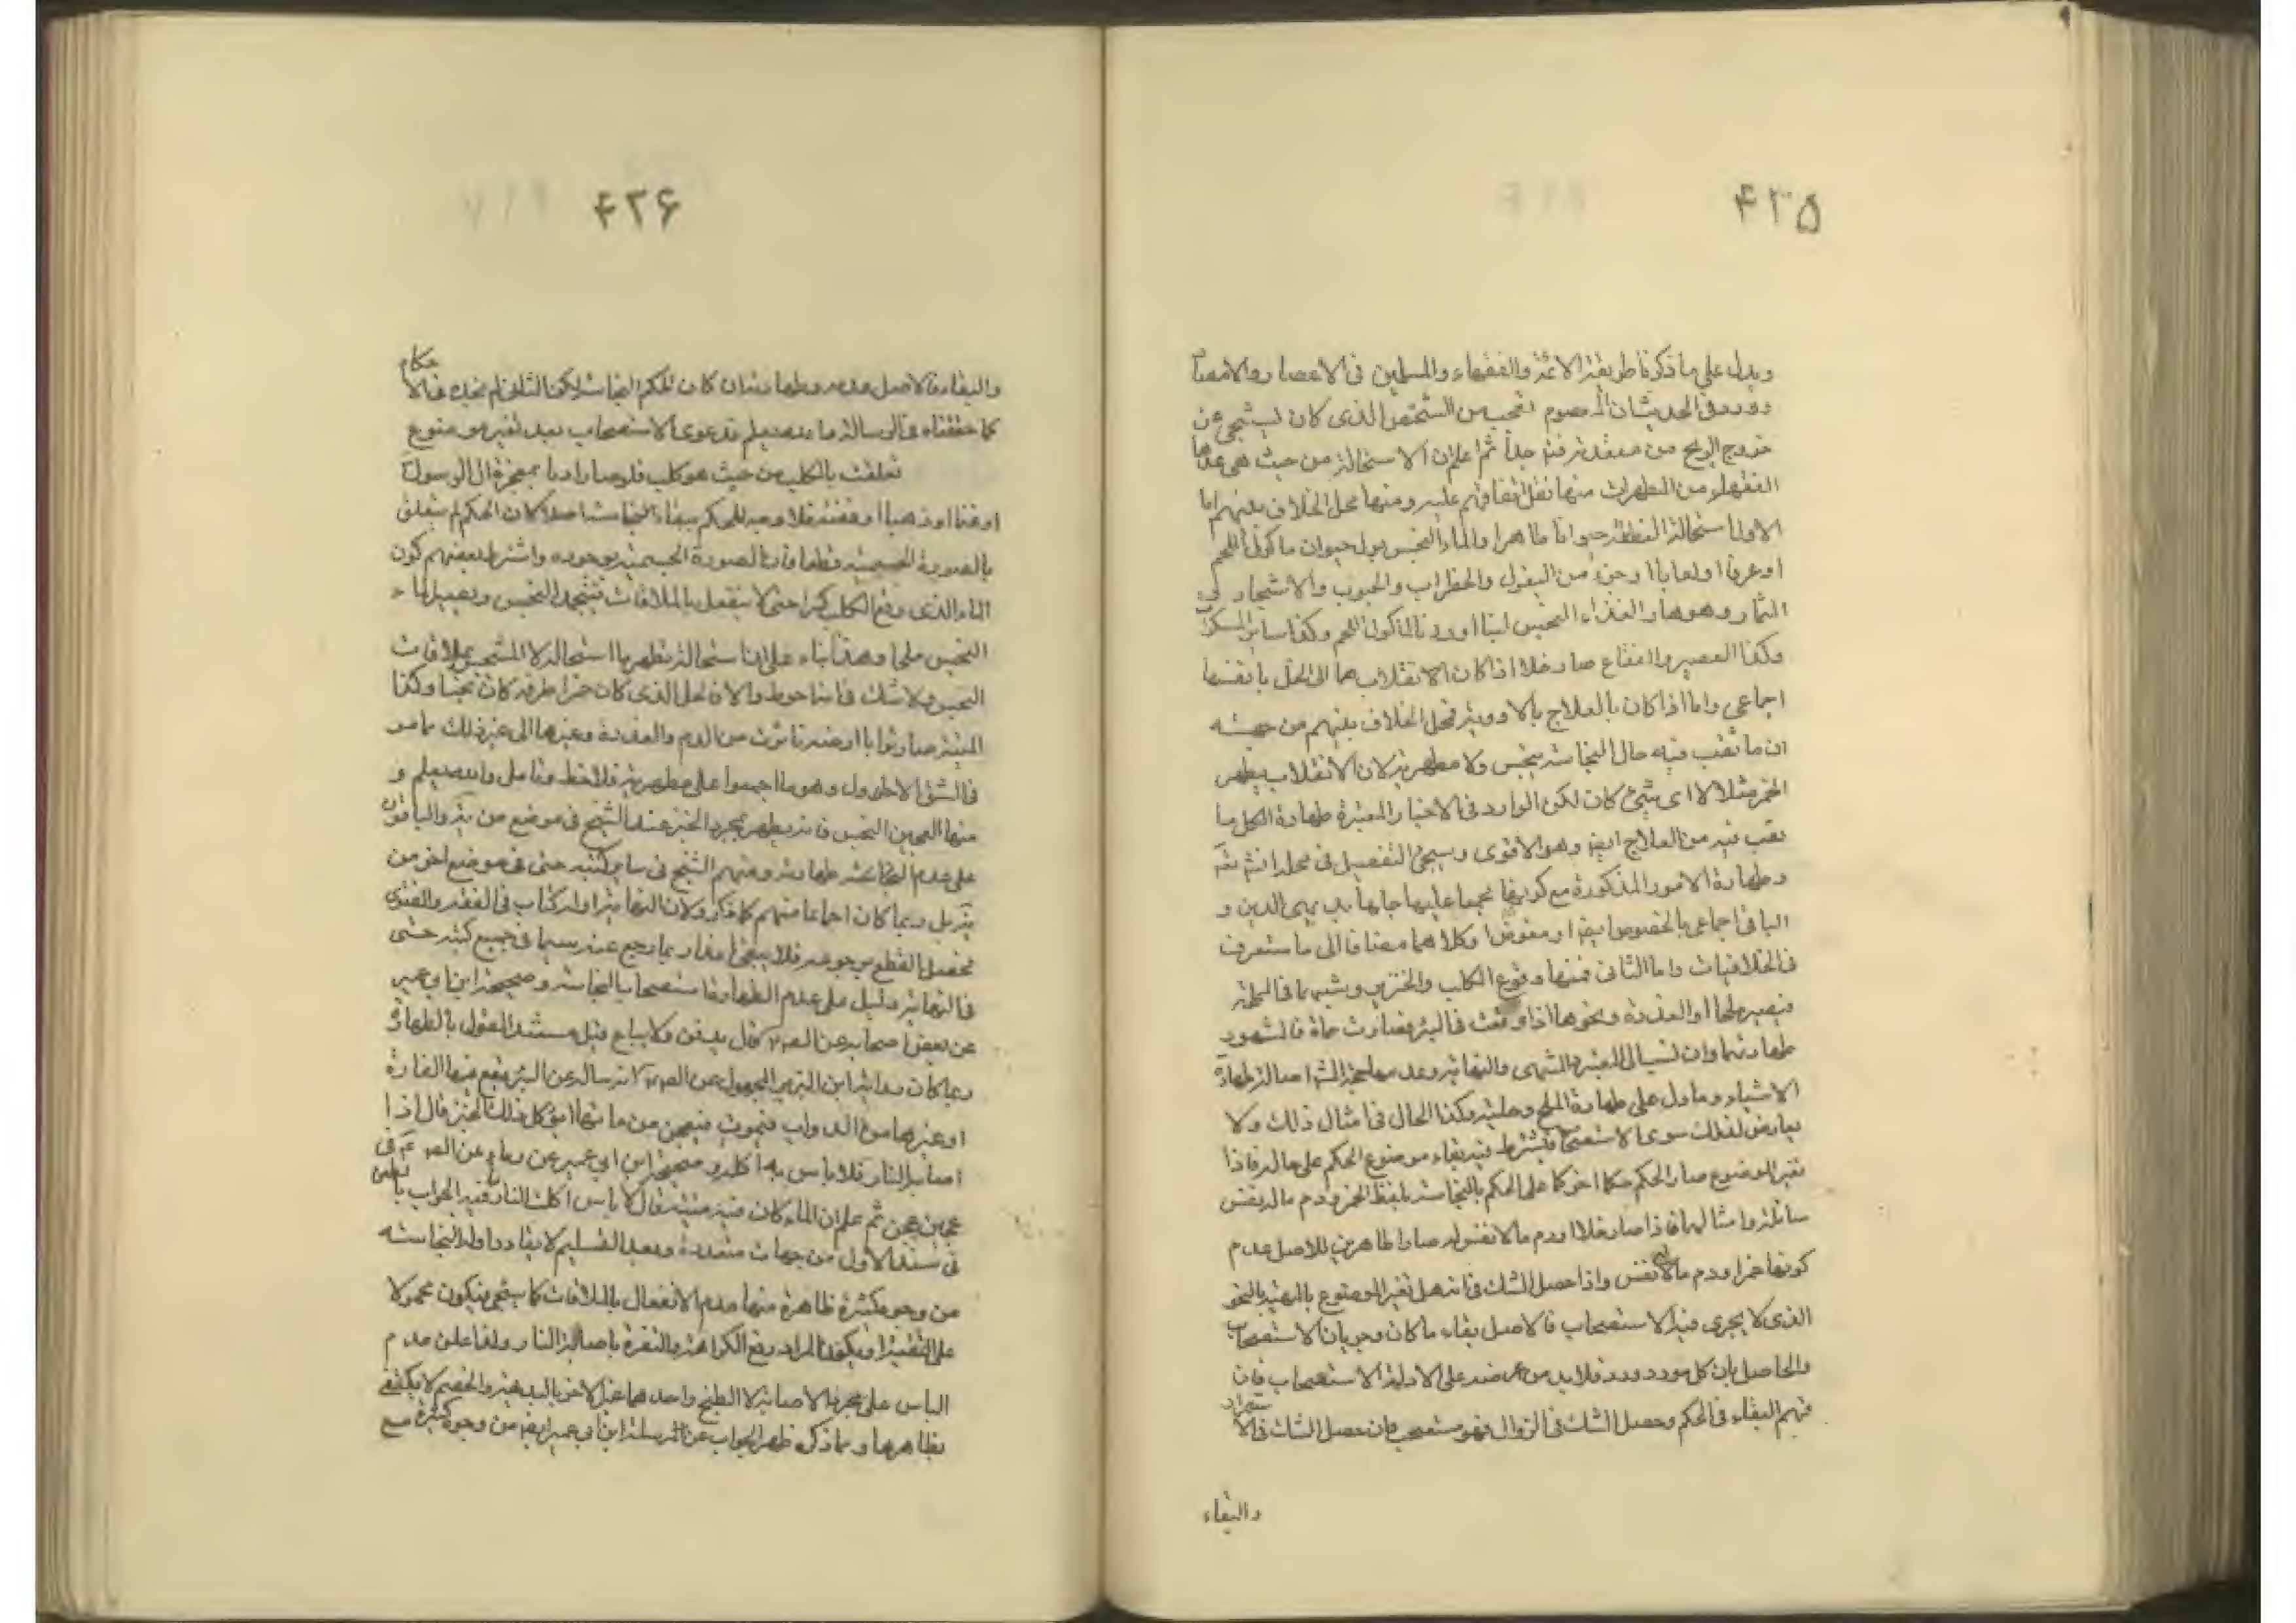 ۴۲۵
ويدل على ما ذكرنا طريقة الائمة والفقهاء والمسلمين فى الاعصار والامصار
وورد فى الحديث ان المعصوم تعجب من الشخص الذى كان يستنجى عن
خروج الريح من مقعدته فته جدا ثم اعلم ان الاستحالة من حيث هى عدها
الفقهاء من المطهرات منها نقل اتفاقهم عليه ومنها محل الخلاف بينهم اما
الاول استحالة النطفة حيوانا طاهرا والماء النجس بول حيوان ماكول اللحم
او عرقا او لعابا او جزء من البقول والخضراوات والحبوب والاشجار
الثمار وهو هذا والغذاء النجس لبنا او روثا لماكول اللحم وكذا ساير المسكرات
وكذا العصير والفقاع صار خلا اذا كان الانقلاب هما الى الخل بانفسها
اجماعى واما اذا كان بالعلاج بالادوية فمحل الخلاف بينهم من جهة
ان ما تقب فيه حال النجاسة ينجس ولا مطهر له لان الانقلاب يطهر
الخمر مثلا لا اى شئ كان لكن الوارد فى الاخبار المعتبرة طهارة الكل ما
تقب فيه من العلاج ايضا وهو الاقوى وسيجئ التفصيل فى محله انش تعه
وطهارة الامور المذكورة مع كونها مجمعا عليها جلها بديهى الدين و
الباقى اجماعى بالخصوص ايضا ومنصوص وكلاهما مضافا الى ما ستعرف
فى الخلافيات واما الثانى فمنها وقوع الكلب والخنزير وشبههما فى المملحة
فيصير ملحا او العذرة ونحوها اذا وقعت فى البئر فصارت حماة فالمشهور
طهارتهما وان نسب الى المعتبر والمنتهى والنهاية وعدمها حجة المش اصالة طهارة
الاشياء وما دل على طهارة الملح وحليته وكذا الحال فى امثال ذلك ولا
يعارض لذلك سوى الاستصحاب فيشترط فيه بقاء موضوع الحكم على حاله فاذا
تغير الموضوع صار الحكم حكما اخر كما على الحكم بالنجاسة بلفظ الخمر ودم ماله نفس
سائلة وامثالهما فاذا صار خلا او دم ما لا نفس له صارا طاهرين للاصل عدم
كونها خمرا ودم ماله نفس واذا حصل الشك فى انه هل تغير الموضوع بالمرتبة بالنحو
الذى لا يجرى فيه الاستصحاب فالاصل بقاء ما كان وجريان الاستصحاب
والحاصل ان كل مورد ورد فلابد من عرضه على الادلة الاستصحاب فان
فهم البقاء فى الحكم وحصل الشك فى الزوال فهو مستصحب وان حصل الشك فى الاستمرار
والبقاء
۴۲۶
والبقاء فالاصل عدمه وطهارته ان كان الحكم النجاسة لكن الثانى لم نجده فى الاحكام
كما حققناه فى الرسالة ما بعد يعلم قد دعوى الاستصحاب بعد تغير موضوع
تعلقت بالكلب من حيث هو كلب فلو صار ادما بمعجزة ال الرسول ص
او غنما او ذهبا او فضة فلا وجه للحكم ببقاء النجاسة اصلا كان الحكم لم يتعلق
بالصورة الجسمية قطعا فان الصورة الجسمية موجودة واشترط بعضهم كون
الماء الذى وقع الكلب كرا حتى لا ينفعل بالملاقات فينجد النجس ويصير الماء
النجس ملحا وهذا بناء على ان استحالة مطهرها استحالة لا المتنجس بملاقات
النجس ولا شك فى انه احوط والا فالخل الذى كان خمرا ظرفه كان نجسا وكذا
الميتة صارت ترابا ارضه تاثرت من الدم والعذرة وغيرها الى غير ذلك مما مر
فى الشق الاول وهو ما اجمعوا على مطهريته فلاحظ وتامل وبعد يعلم و
منها العجين النجس فانه يطهر بمجرد الخبز عند الشيخ فى موضع من يه والباقون
على عدم الحكم طهارته ومنهم الشيخ فى ساير كتبه حتى فى موضع اخر من
يه بل ربما كان اجماعا منهم كما ذكر ولان النهاية اول كتاب فى الفقه والفتوى
تحصل القطع برجوعه فلا ينبغى وربما رجع عنه سيما فى جميع كتبه حتى
فى النهاية دليل على عدم الطهارة استصحاب النجاسة وصحيحة ابن ابى عمير
عن بعض اصحابه عن الص ع قال يدفن ولا يباع قيل مستند القول بالطهارة
ربما كان رواية ابن الزبير المجهول عن الص ع انه ساله عن البئر يقع فيها الفارة
او غيرها من الدواب فتموت فيعجن من مائها ايؤكل ذلك الخبز قال اذا
اصابه النار فلا باس به اكله وصحيحة ابن ابى عمير عن رواه عن الص ع فى
عجين عجن ثم علم ان الماء كان فيه ميتة قال لا باس اكلت النار ما فيه الجواب بالطعن
فى سند الاول من جهات متعددة وبعد التسليم لا يقاوم ادلة النجاسة
من وجوه كثيرة ظاهرة منها عدم الانفعال بالملاقات كما سيجئ فيكون محمولا
على التقية او يكون المراد رفع الكراهة والنفرة باصابة النار ولذا علق عدم
الباس على مجرد الاصابة لا الطبخ واحدهما غير الاخر بالبديهة والخصم لا يكتفى
بظاهرها ومما ذكر ظهر الجواب عن مرسلة ابن ابى عمير ايضا من وجوه كثيرة مع